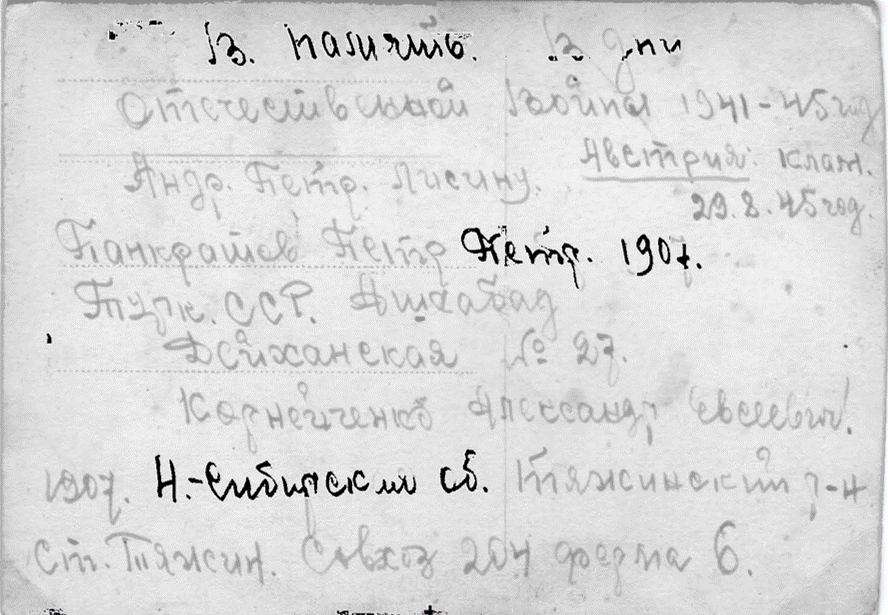 В память. В дни
Отечественной Войны 1941-45 год
Андр. Петр. Лисину. Австрия. Клаж.
29.8.45 год.
Панкратов Петр Петр. 1907.
Турк. ССР. Ашхабад
Дейханская № 27.
Корнейченко Александр Евсеевич.
1907. Н.-Сибирская об. Тяжинский р-н
Ст. Тяжин. Совхоз 204 ферма 6.